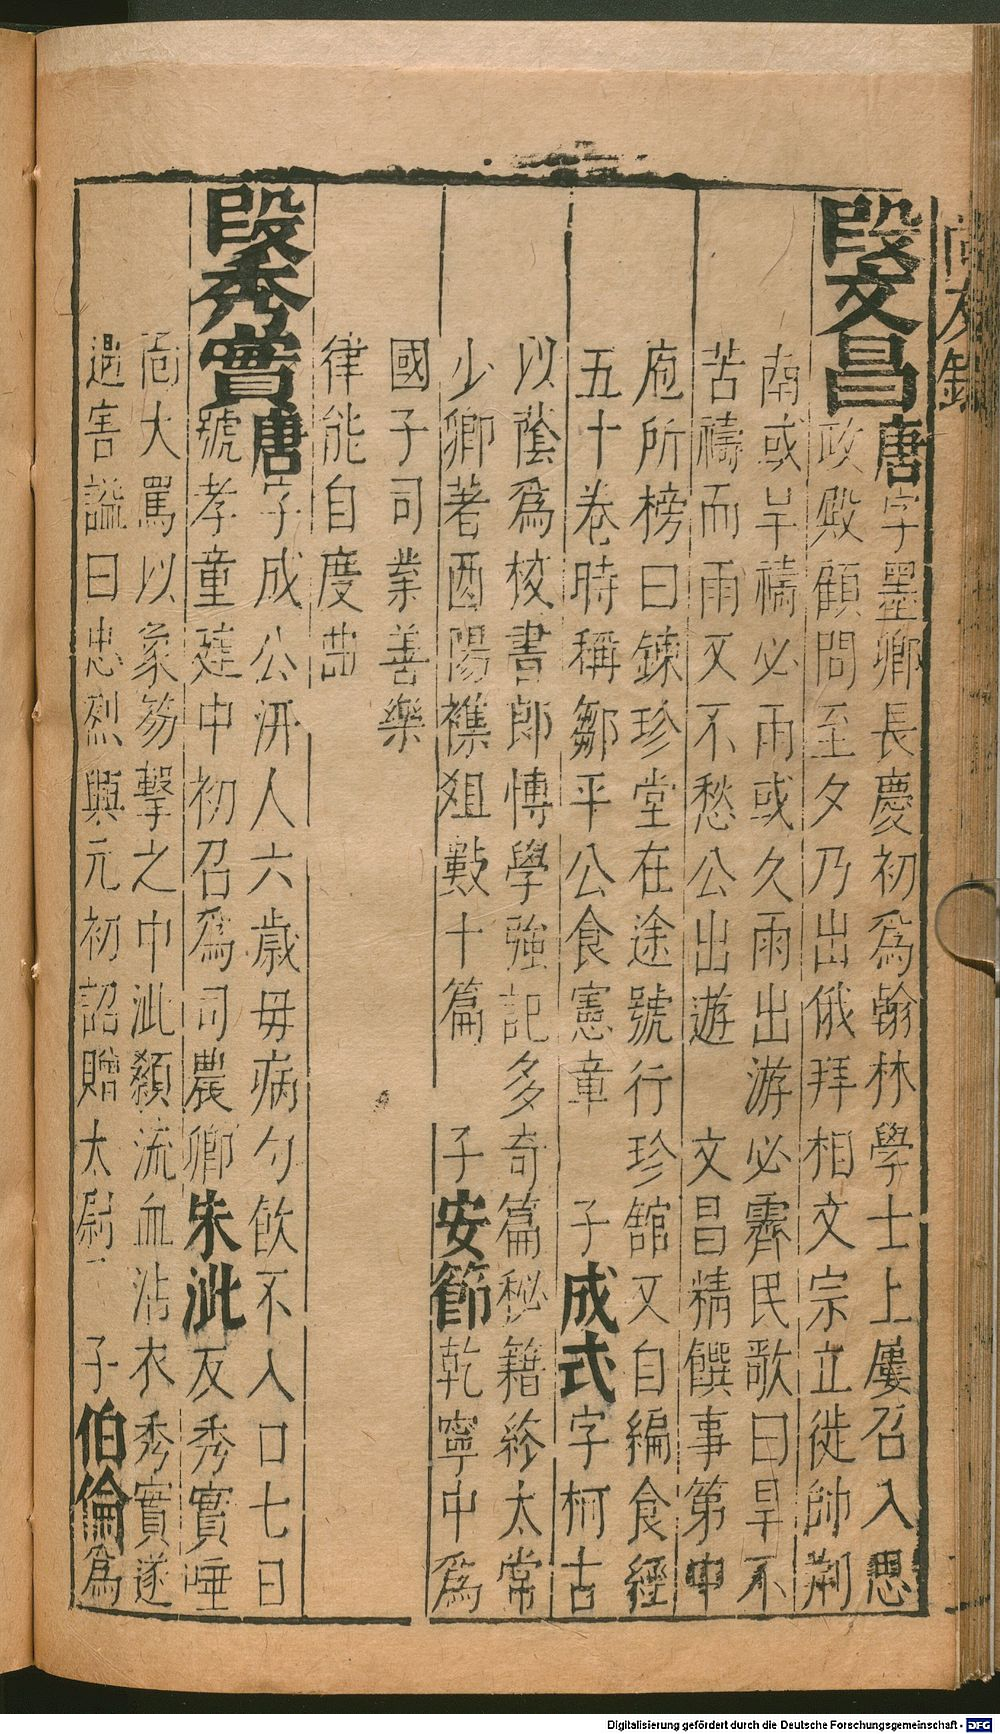 尚友錄
段文昌唐字墨卿長慶初爲翰林學士上屢召入思
政殿顧問至夕乃出俄拜相文宗立徙帥荆
南或旱禱必雨或久雨出游必霽民歌曰旱不
苦禱而雨雨不愁公出遊 文昌精饌事第中
庖所榜曰鍊珍堂在途號行珍舘又自編食經
五十卷時稱鄒平公食憲章 子成式字柯古
以蔭爲校書郎博學強記多奇篇秘籍終太常
少卿著酉陽襍俎數十篇 子安節乾寧中爲
國子司業善樂
律能自度曲
段秀實唐字成公汧人六歲毋病勺飲不入口七日
號孝童建中初召爲司農卿朱泚反秀實唾
泚大罵以象笏擊之中泚顙流血沾衣秀實遂
遇害謚曰忠烈興元初詔贈太尉 子伯倫爲
Digitalisierung gefördert durch die Deutsche Forschungsgemeinschaft - DFG